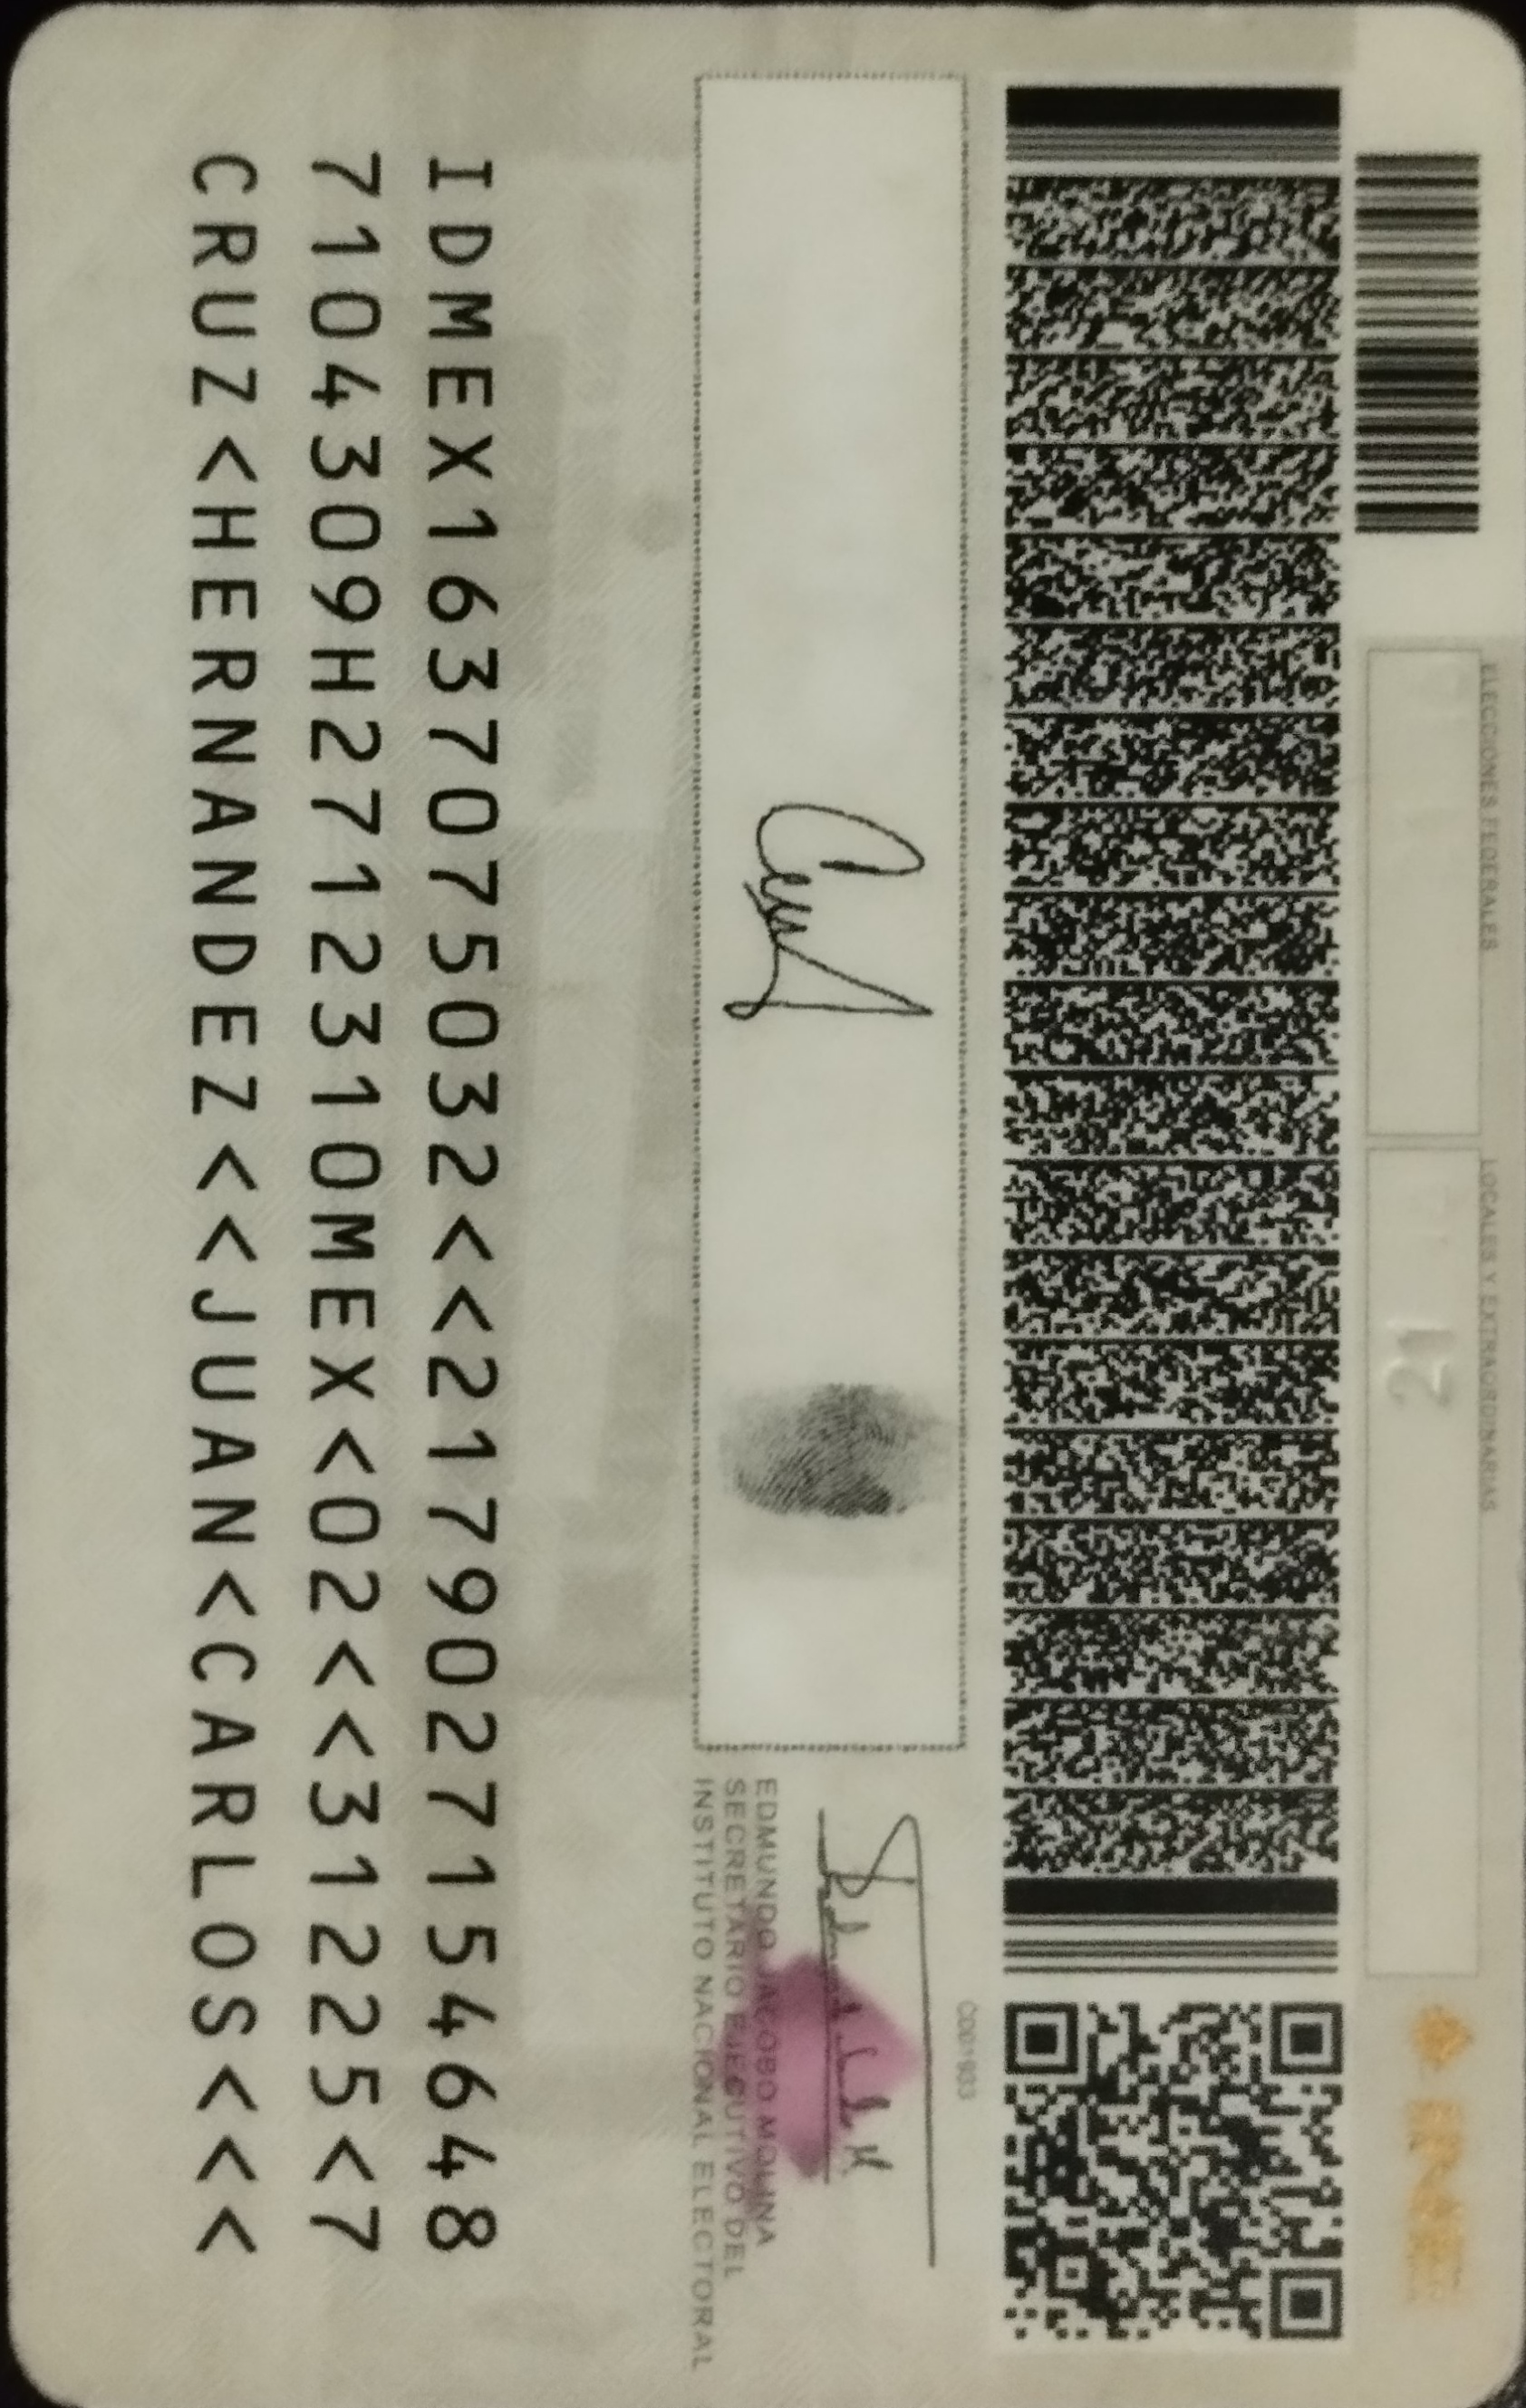 ELECCIONES FEDERALES
LOCALES Y EXTRAORDINARIAS
21
INE
EDMUNDO JACOBO MOLINA
SECRETARIO EJECUTIVO DEL
INSTITUTO NACIONAL ELECTORAL
IDMEX1637075032<<2179027154648
7104309H2712310MEX<02<<31225<7
CRUZ<HERNANDEZ<<JUAN<CARLOS<<<